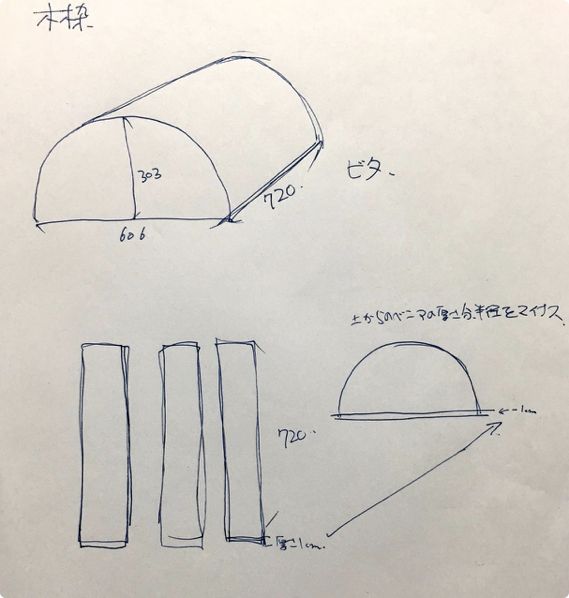 木枠
303
606
720.
ピタ.
上からのベニアの厚さ分半径をマイナス
←-1cm
720.
厚さ1cm.